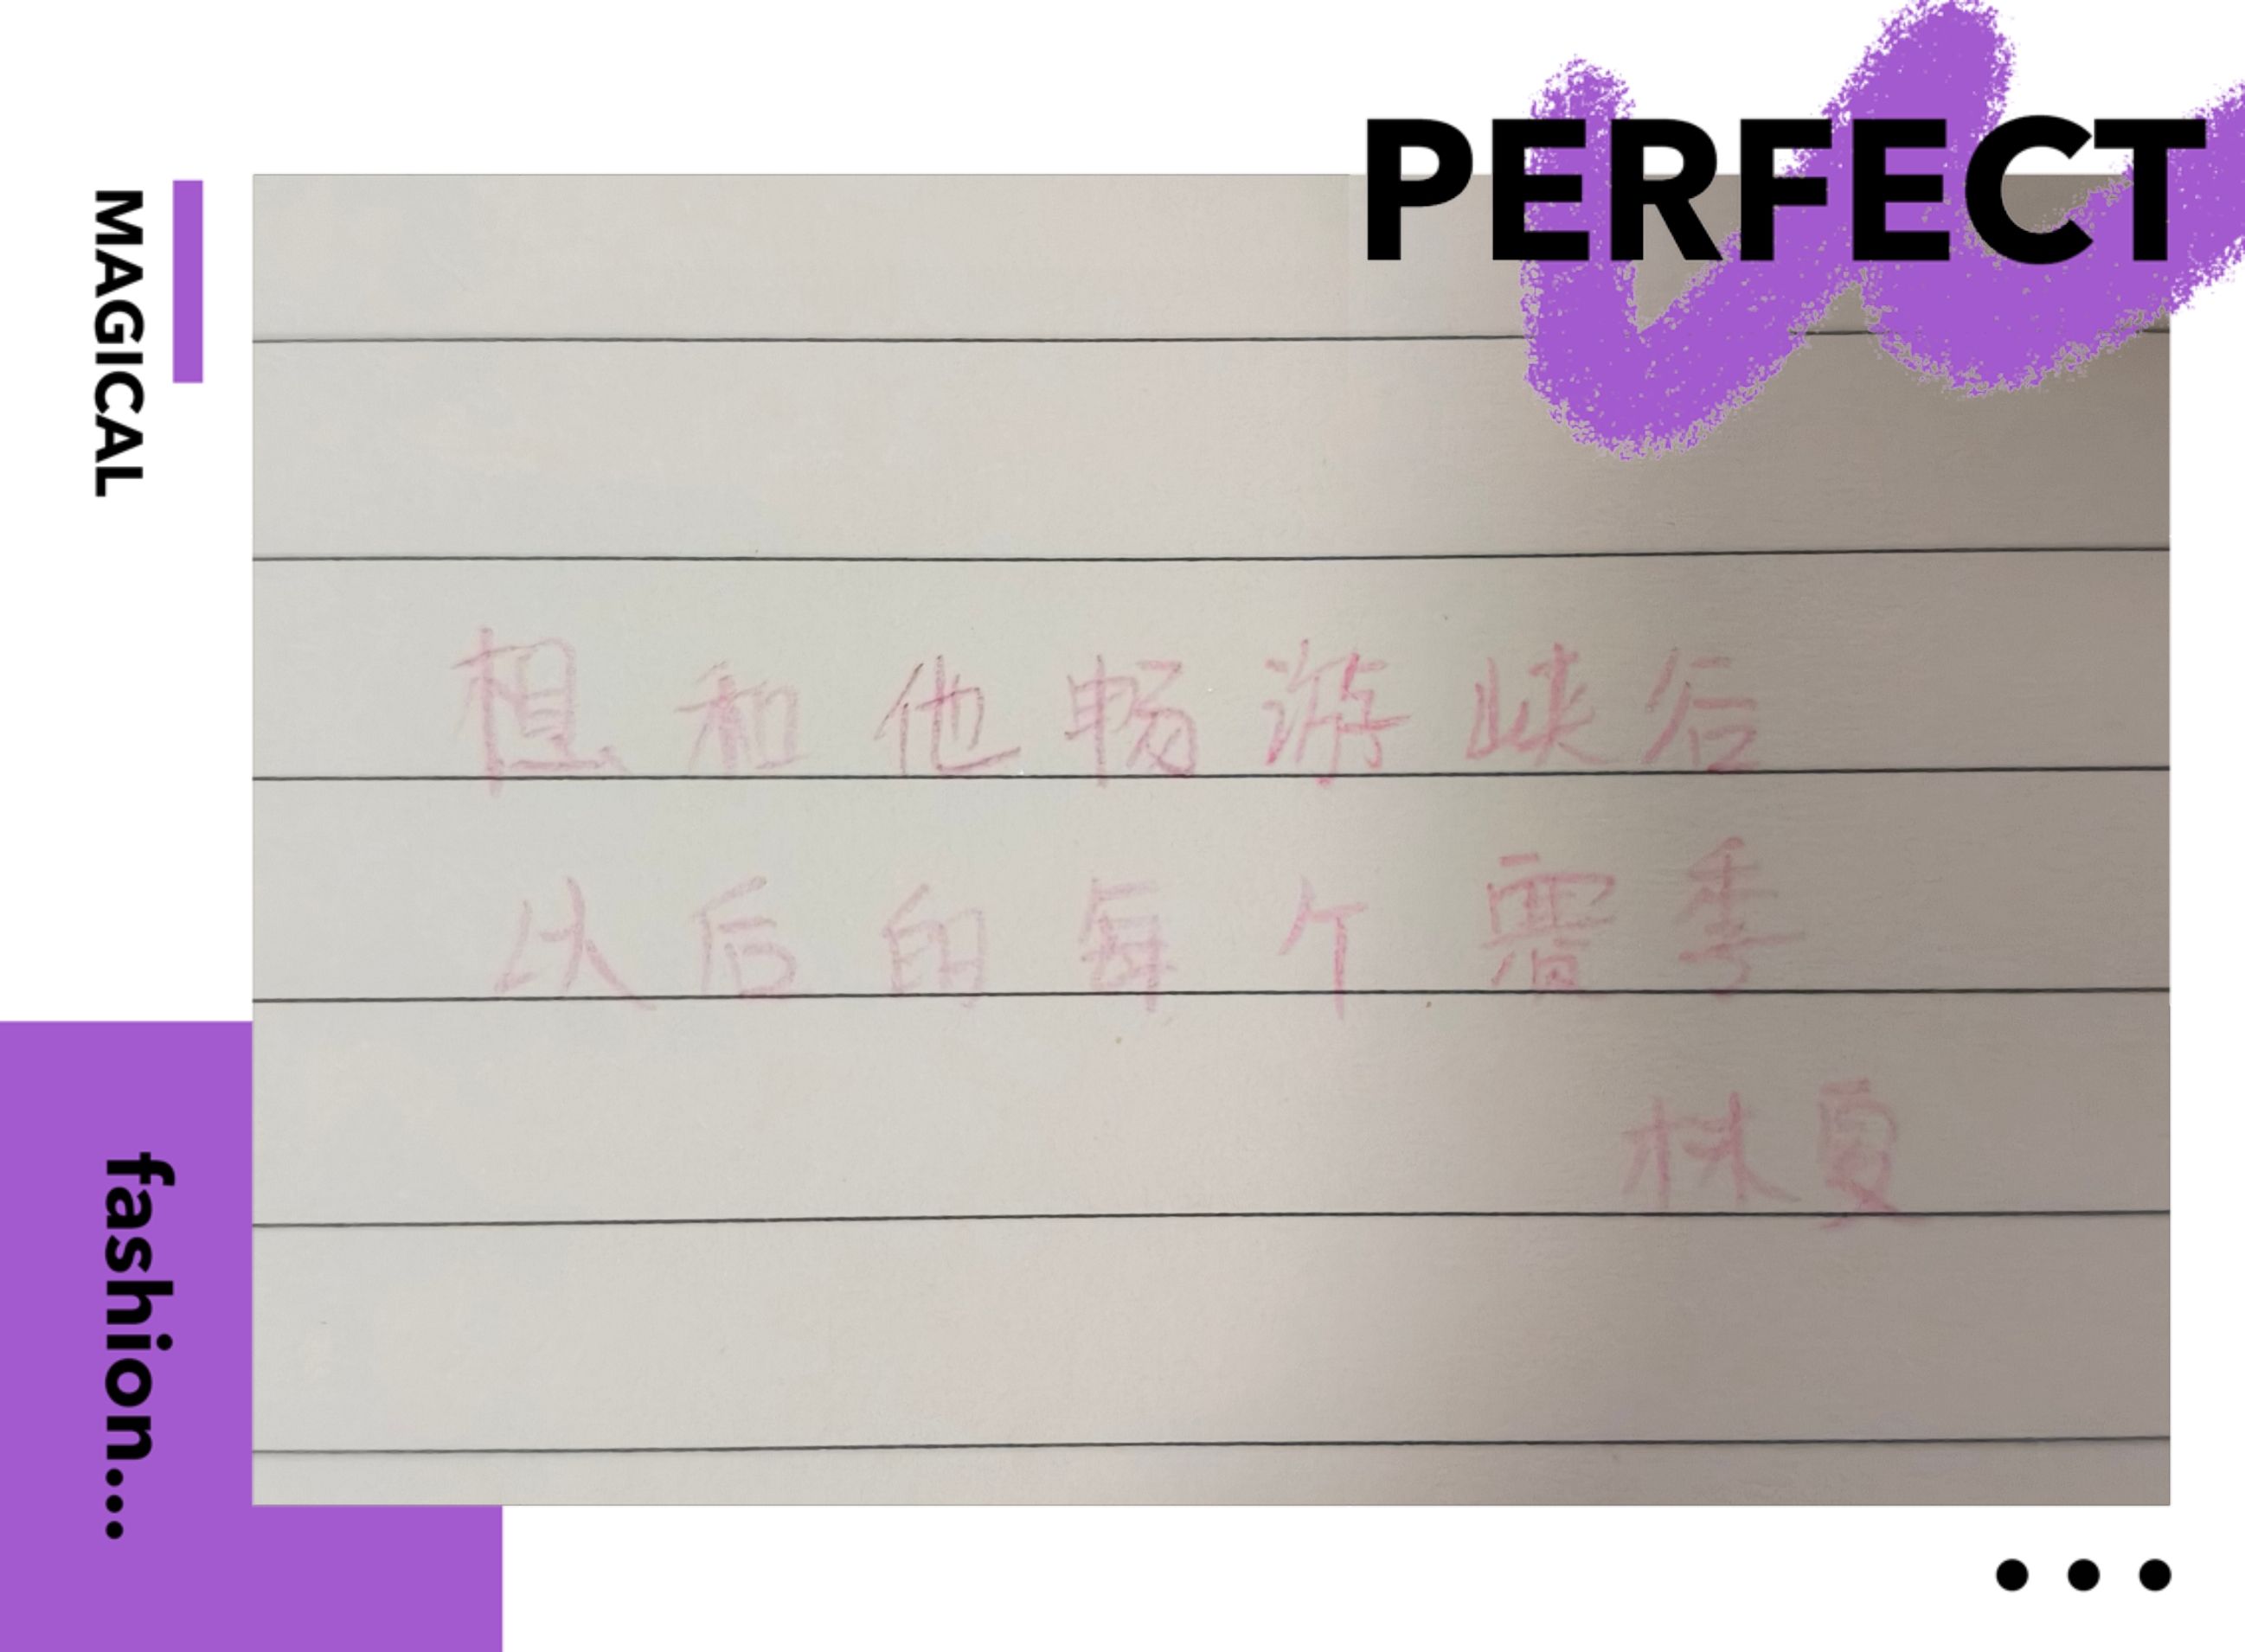 PERFECT
MAGICAL
想和他畅游峡谷
以后的每个季
林夏
fashion...